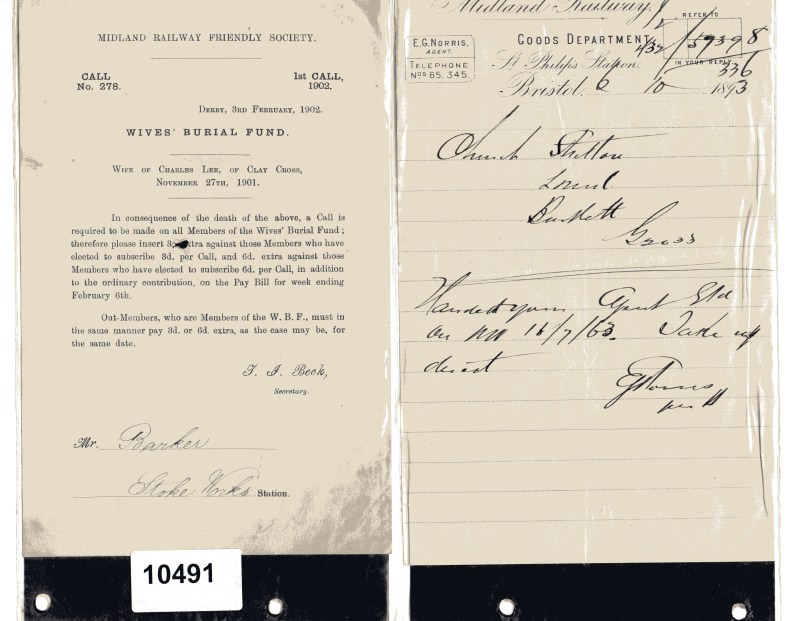 MIDLAND RAILWAY FRIENDLY SOCIETY.
CALL
No. 278.
1st CALL,
1902.
DERBY, 3RD FEBRUARY, 1902.
WIVES' BURIAL FUND.
WIFE OF CHARLES LEE, OF CLAY CROSS,
NOVEMBER 27TH, 1901.
In consequence of the death of the above, a Call is
required to be made on all Members of the Wives' Burial Fund;
therefore please insert 3d. extra against those Members who have
elected to subscribe 3d. per Call, and 6d. extra against those
Members who have elected to subscribe 6d. per Call, in addition
to the ordinary contribution, on the Pay Bill for week ending
February 6th.
Out-Members, who are Members of the W. B. F., must in
the same manner pay 3d. or 6d. extra, as the case may be, for
the same date.
T. J. Beck,
Secretary.
Mr. Barker
Stoke Works Station.
10491
Midland Railway.
E.G. NORRIS,
AGENT.
TELEPHONE
Nos 65, 345.
GOODS DEPARTMENT,
St. Philip's Station,
REFER TO
59398
IN YOUR REPLY
336
Bristol, 6 10 1893
Church Stretton
Burkett
on 16/7/63. Take up
direct